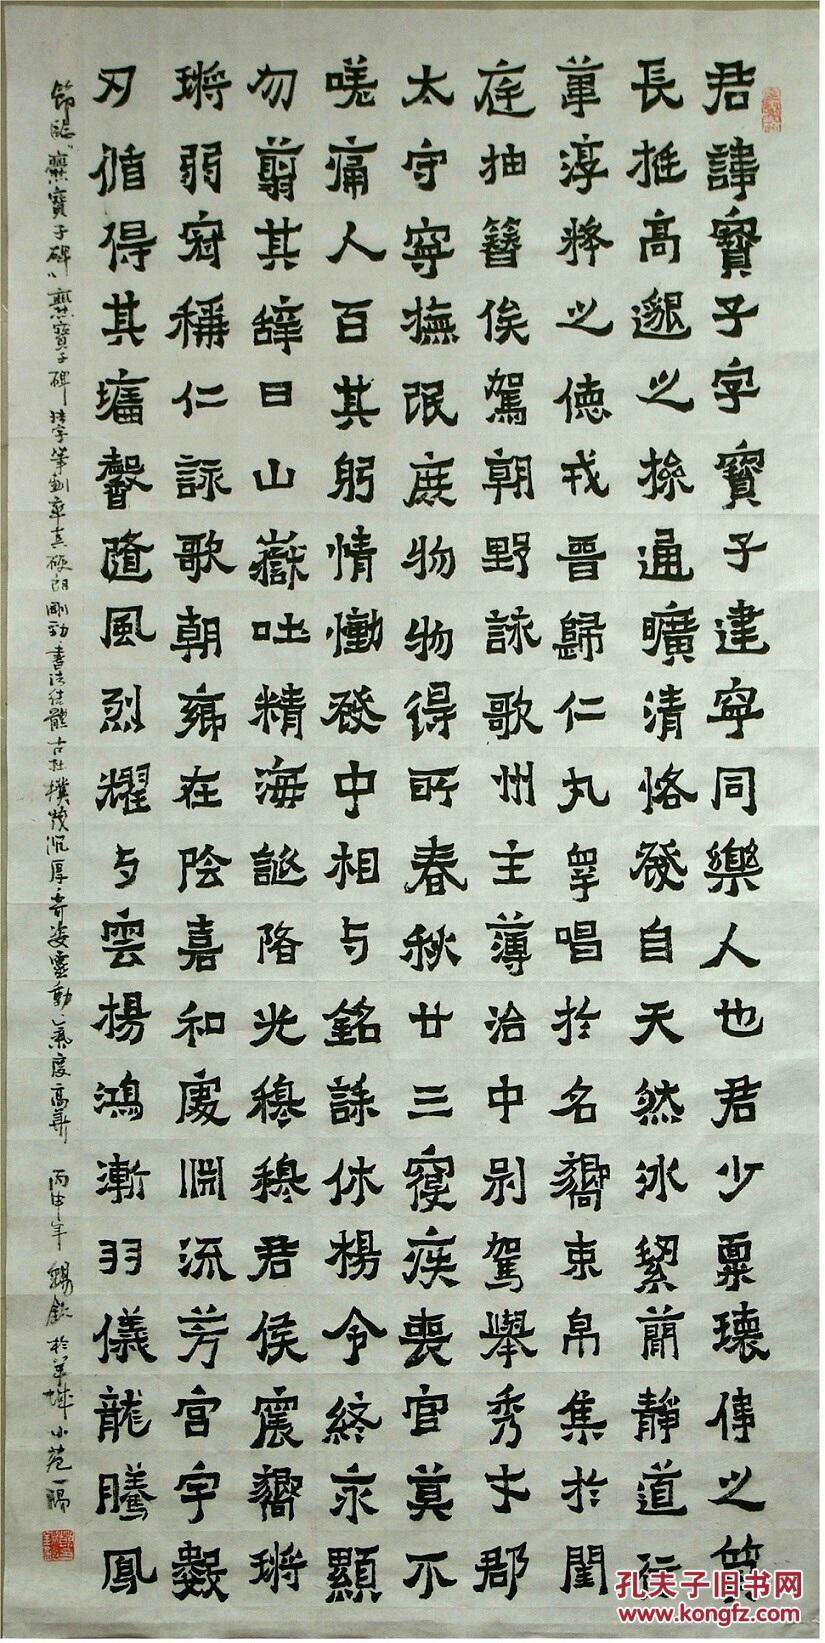 君諱寶子字寶子建寧同樂人也君少稟瓌偉之質
長挺高邈之操通曠清恪發自天然冰絜簡靜道行
葦淳粹之德戎晉歸仁九皋唱於名嚮束帛集於閨
庭抽簪俟駕朝野詠歌州主薄治中別駕舉秀才郡
太守寧撫氓庶物物得所春秋廿三寑疾喪官莫不
嗟痛人百其躬情慟發中相与銘誄休楊令終永顯
勿翦其辭曰山嶽吐精海誕陼光穆穆君侯震嚮鏘
鏘弱冠稱仁詠歌朝鄉在陰嘉和處淵流芳宮宇數
刃循得其墻馨隨風烈耀与雲楊鴻漸羽儀龍騰鳳
節臨《爨寶子碑》爨寶子碑 率真硬朗剛勁書法結體古拙樸茂沉厚奇姿靈動氣度高華 丙申年 錫欽於羊城小苑
孔夫子旧书网
www.kongfz.com